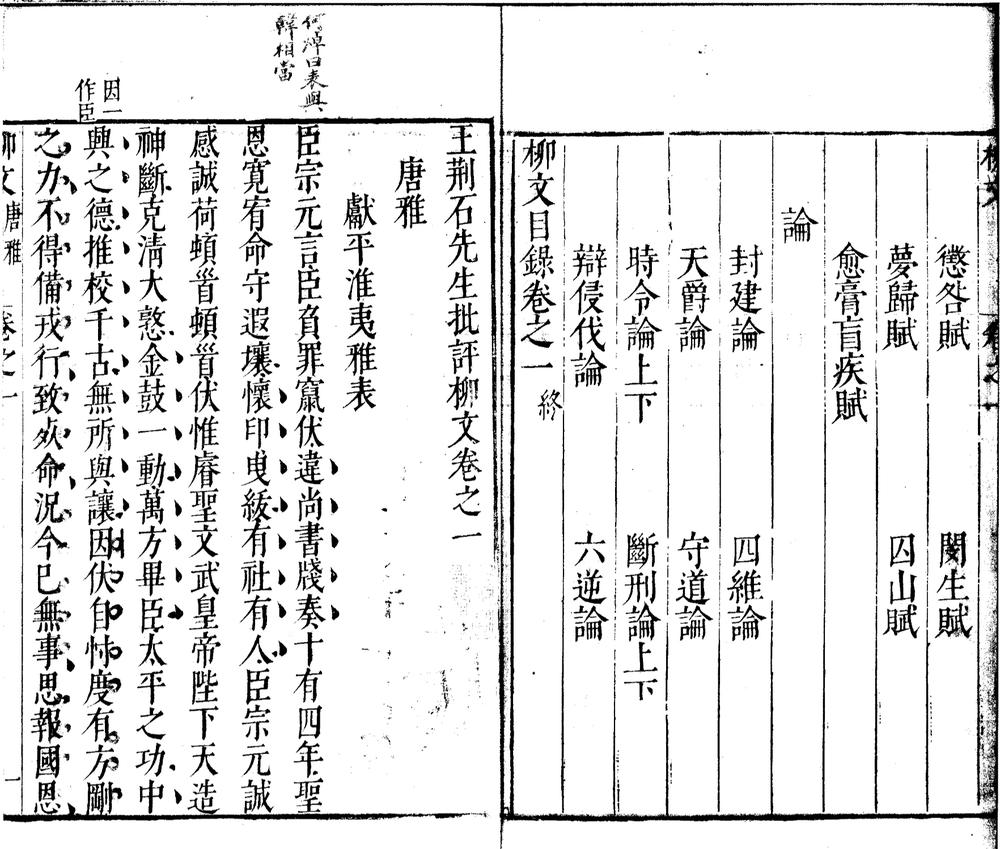 柳文 卷之一
懲咎賦 閔生賦
夢歸賦 囚山賦
愈膏肓疾賦
論
封建論 四維論
天爵論 守道論
時令論上下 斷刑論上下
辯侵伐論 六逆論
柳文目錄卷之一 終
何焯曰表與
韓相當
王荆石先生批評柳文卷之一
唐雅
獻平淮夷雅表
臣宗元言臣負罪竄伏違尚書牋奏十有四年聖
恩寬宥命守遐壤懷印曳紱有社有人臣宗元誠
感誠荷頓首頓首伏惟睿聖文武皇帝陛下天造
神斷克清大憝金鼓一動萬方畢臣太平之功中
因一
作臣
興之德推校千古無所與讓因伏自忖度有方剛
之力不得備戎行致死命況今已無事思報國恩
柳文 唐雅 卷之一 一